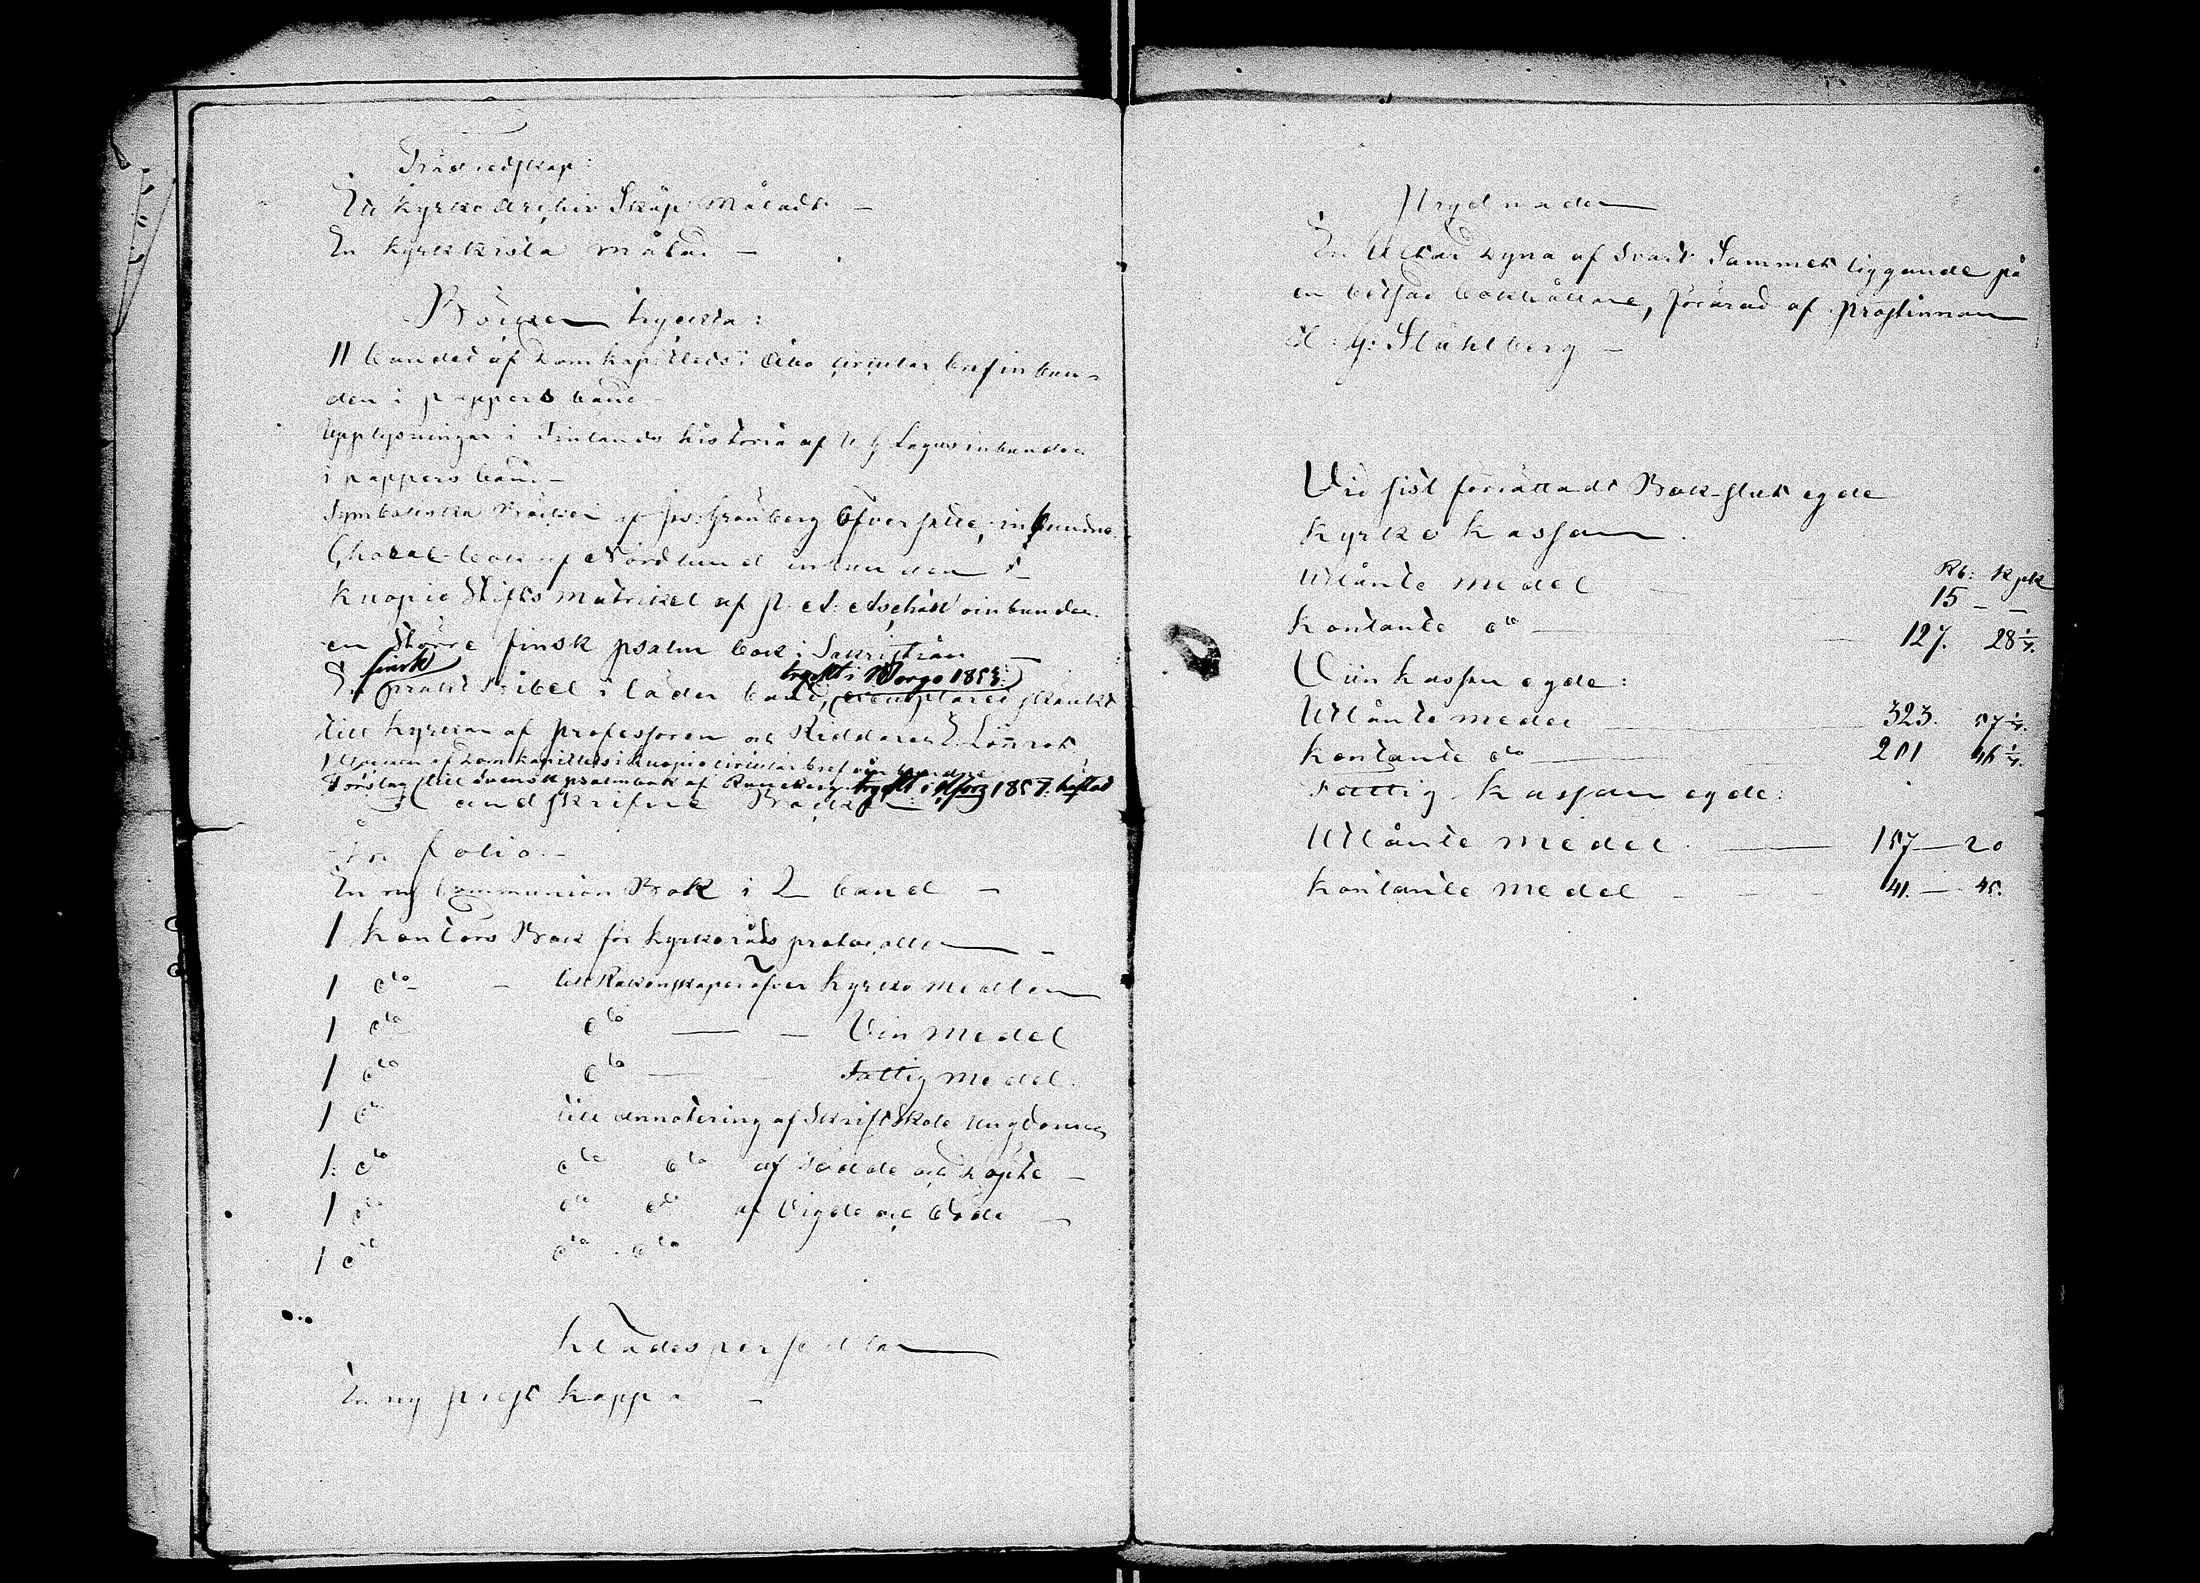 Trädredskap:
Ett kyrko Archiv Skåp måladt —
En kyrkkista målad. —
Böcker tryckta:
11 bandet af Domkapitlets i Åbo circulär bref inbun-
den i pappers band
Upplysningar i Finlands historia af W G Lagus inbunden
i pappers band —
Symboliska Böcker af Jos: Grönberg öfversatte, inbundne.
Choral-bok af Nordlund inbunden
Kuopio Stifts matrikel af P. A. Aschan oinbunden.
en större finsk psalm bok i Sakristian —
finsk tryckt i Borgo 1853:
En prakt Bibel i läder band, exemplaret skänkt
till kyrkan af Professoren och Riddaren E Lönnrot
1 Domkapitlets i Kuopio circulär bref
Förslag till svensk psalmbok af Runeberg tryckt i Hfors 1857. häftad
Handskrifne Böcker:
In folio. —
En ny Communion Bok i 2 band —
1 Kontors Bok för Kyrkoråds protocoller —
1 dto — till Räkenskaper öfver Kyrko medlen
1 dto dto — — Vin medel
1 dto dto — Fattig medel.
1 dto till annotering af Skriftskole Ungdomen
1: dto dto dto af Födde och Döpte —
1 dto dto dto af Vigde och Döde —
1 dto dto dto
Klädespersedlar
En ny prest kappa —
Prydnader
En Altar dyna af svart Sammet liggande på
en betsad bokhållare, förärad af Prostinnan
G: Ståhlberg —
Vid sist förrättadt Bok-slut egde
Kyrko kassan.
Rb: Kpk
Utlånte medel 15 — —
Kontante dto — 127. 28 1/7.
Vin kassan egde:
Utlånte medel — 323. 57 1/7.
Kontante dto — 201 46 1/7.
Fattig kassan egde:
Utlånte medel. — 157 — 20
Kontante medel — 41. — 45.